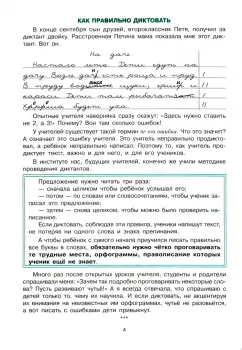 КАК ПРАВИЛЬНО ДИКТОВАТЬ
В конце сентября сын друзей, второклассник Петя, получил за
диктант двойку. Расстроенная Петина мама показала мне этот дик-
тант. Вот он:
На даче
Настало лето. Дети едут на
дачу. Возле дачи есть роща и пруд.
В пруду водятся щуки, ерши и
караси. Дети там рыбачат.
будет уха
Опытные учителя наверняка сразу скажут: «Здесь нужно ставить
не 2, а 3!» Почему? Ведь там сколько ошибок!
У учителей существует такой термин не его ошибка. Что это значит?
А означает это ошибку учителя. Это учитель неправильно диктовал,
а ребёнок неправильно написал. Поэтому то, как учитель или роди-
тель диктует, важно и для него, и для его учеников.
В институте нас, будущих учителей, конечно же учили методике
проведения диктантов.
Предложение нужно читать три раза:
— сначала целиком, чтобы ребёнок услышал его;
— потом — по словам или словосочетаниям, чтобы ученик за-
писал это предложение;
— затем — снова целиком, чтобы можно было проверить на-
писанное.
Если диктовать, соблюдая эти правила, ученики напишут текст,
не потеряв ни одного слова и знака препинания.
А чтобы ребёнок с самого начала приучился писать правильно
все буквы в словах, обязательно нужно чётко проговаривать
те трудные места, орфограммы, правописание которых
ученик ещё не знает.
Много раз после открытых уроков учителя, студенты и родители
спрашивали меня: «Зачем так подробно проговаривать некоторые сло-
ва? Пусть развивают чутьё!» А я всегда отвечала, что спрашиваю с
детей только то, чему их научила. И если диктовать, не акцентируя
их внимания на неизвестных им орфограммах, чутьё не разовьётся,
а вот писать с ошибками дети привыкнут.
***
4